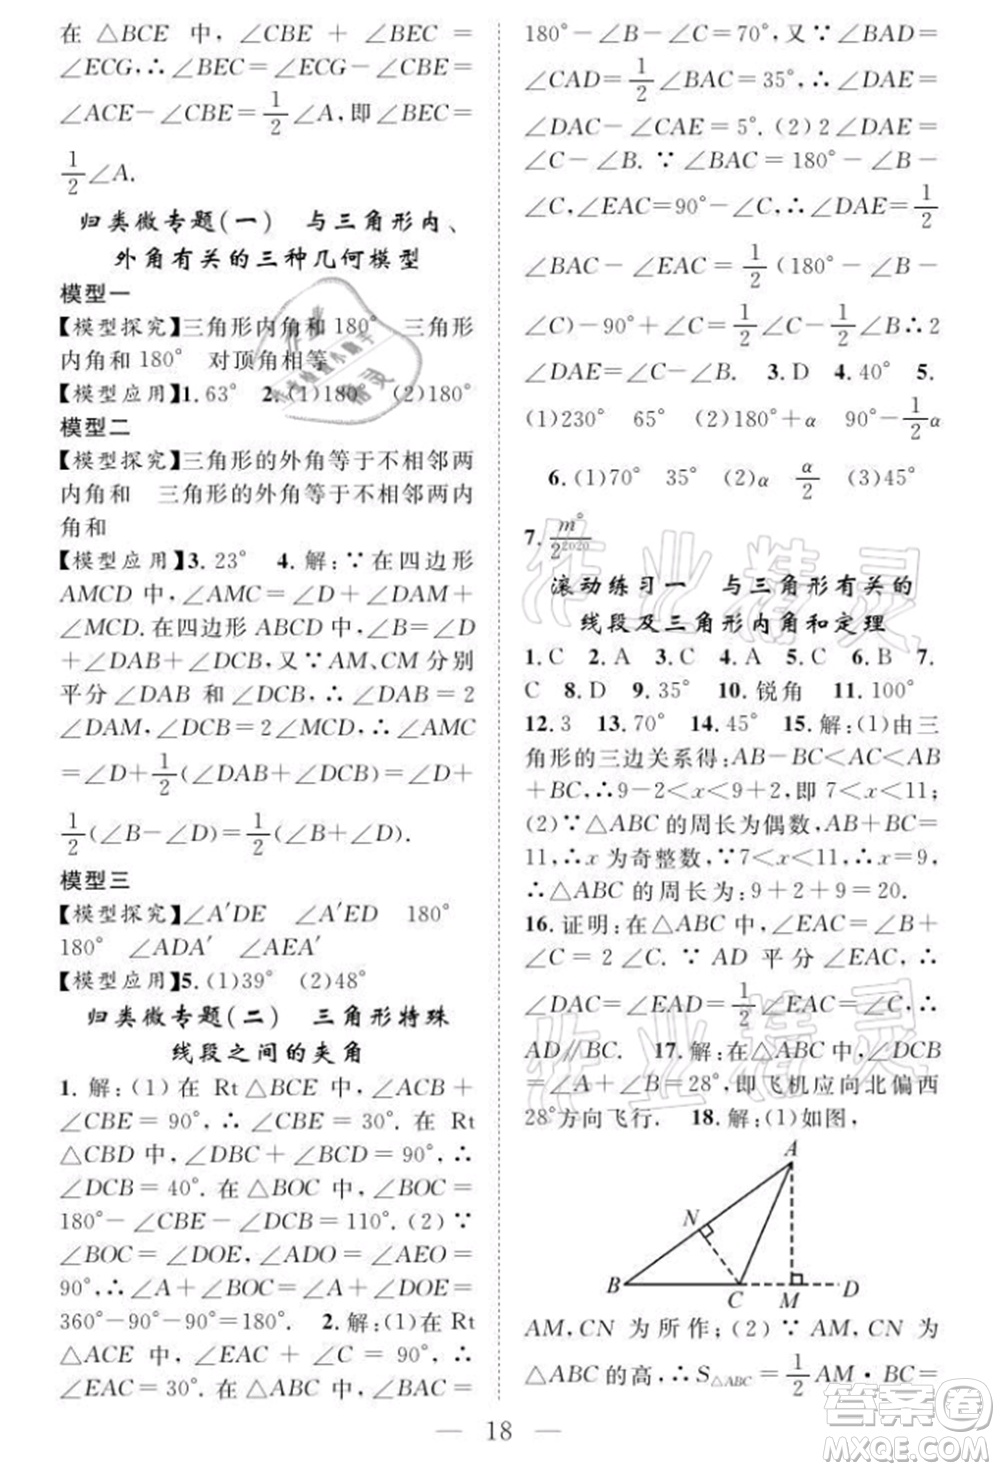 在 △BCE 中, ∠CBE + ∠BEC =
∠ECG, ∴ ∠BEC = ∠ECG − ∠CBE =
∠ACE − ∠CBE = 1/2 ∠A, 即 ∠BEC =
1/2 ∠A.
归类微专题(一) 与三角形内、
外角有关的三种几何模型
模型一
【模型探究】三角形内角和 180° 三角形
内角和 180° 对顶角相等
【模型应用】1. 63° 2. (1)180° (2)180°
模型二
【模型探究】三角形的外角等于不相邻两
内角和 三角形的外角等于不相邻两内
角和
【模型应用】3. 23° 4. 解: ∵ 在四边形
AMCD 中, ∠AMC = ∠D + ∠DAM +
∠MCD. 在四边形 ABCD 中, ∠B = ∠D
+ ∠DAB + ∠DCB, 又 ∵ AM, CM 分别
平分 ∠DAB 和 ∠DCB, ∴ ∠DAB = 2
∠DAM, ∠DCB = 2∠MCD, ∴ ∠AMC
= ∠D + 1/2 (∠DAB + ∠DCB) = ∠D +
1/2 (∠B − ∠D) = 1/2 (∠B + ∠D).
模型三
【模型探究】∠A′DE ∠A′ED 180°
180° ∠ADA′ ∠AEA′
【模型应用】5. (1)39° (2)48°
归类微专题(二) 三角形特殊
线段之间的夹角
1. 解: (1) 在 Rt △BCE 中, ∠ACB +
∠CBE = 90°, ∴ ∠CBE = 30°. 在 Rt
△CBD 中, ∠DBC + ∠BCD = 90°, ∴
∠DCB = 40°. 在 △BOC 中, ∠BOC =
180° − ∠CBE − ∠DCB = 110°. (2) ∵
∠BOC = ∠DOE, ∠ADO = ∠AEO =
90°, ∴ ∠A + ∠BOC = ∠A + ∠DOE =
360° − 90° − 90° = 180°. 2. 解: (1) 在 Rt
△ACE 中, ∠EAC + ∠C = 90°, ∴
∠EAC = 30°. 在 △BAC 中, ∠BAC =
180° − ∠B − ∠C = 70°, 又 ∵ ∠BAD =
∠CAD = 1/2 ∠BAC = 35°, ∴ ∠DAE =
∠DAC − ∠CAE = 5°. (2) 2∠DAE =
∠C − ∠B. ∵ ∠BAC = 180° − ∠B −
∠C, ∠EAC = 90° − ∠C, ∴ ∠DAE = 1/2
∠BAC − ∠EAC = 1/2 (180° − ∠B −
∠C) − 90° + ∠C = 1/2 ∠C − 1/2 ∠B ∴ 2
∠DAE = ∠C − ∠B. 3. D 4. 40° 5.
(1)230° 65° (2)180° + α 90° − 1/2 α
6. (1)70° 35° (2)α α/2 (3)45°
7. m°/2²⁰²⁰
滚动练习一 与三角形有关的
线段及三角形内角和定理
1. C 2. A 3. C 4. A 5. C 6. B 7.
C 8. D 9. 35° 10. 锐角 11. 100°
12. 3 13. 70° 14. 45° 15. 解: (1) 由三
角形的三边关系得: AB − BC < AC < AB
+ BC, ∴ 9 − 2 < x < 9 + 2, 即 7 < x < 11;
(2) ∵ △ABC 的周长为偶数, AB + BC =
11, ∴ x 为奇整数, ∵ 7 < x < 11, ∴ x = 9,
∴ △ABC 的周长为: 9 + 2 + 9 = 20.
16. 证明: 在 △ABC 中, ∠EAC = ∠B +
∠C = 2 ∠C. ∵ AD 平分 ∠EAC, ∴
∠DAC = ∠EAD = 1/2 ∠EAC = ∠C, ∴
AD∥BC. 17. 解: 在 △ABC 中, ∠ACB =
∠DBA − ∠BAC = 28°, 即飞机应向北偏西
28° 方向飞行. 18. 解: (1) 如图,
A
N
B C M D
AM, CN 为所作; (2) ∵ AM, CN 为
△ABC 的高, ∴ S△ABC = 1/2 AM · BC =
18
作业精灵
作业精灵
答案圈
MXQE.COM